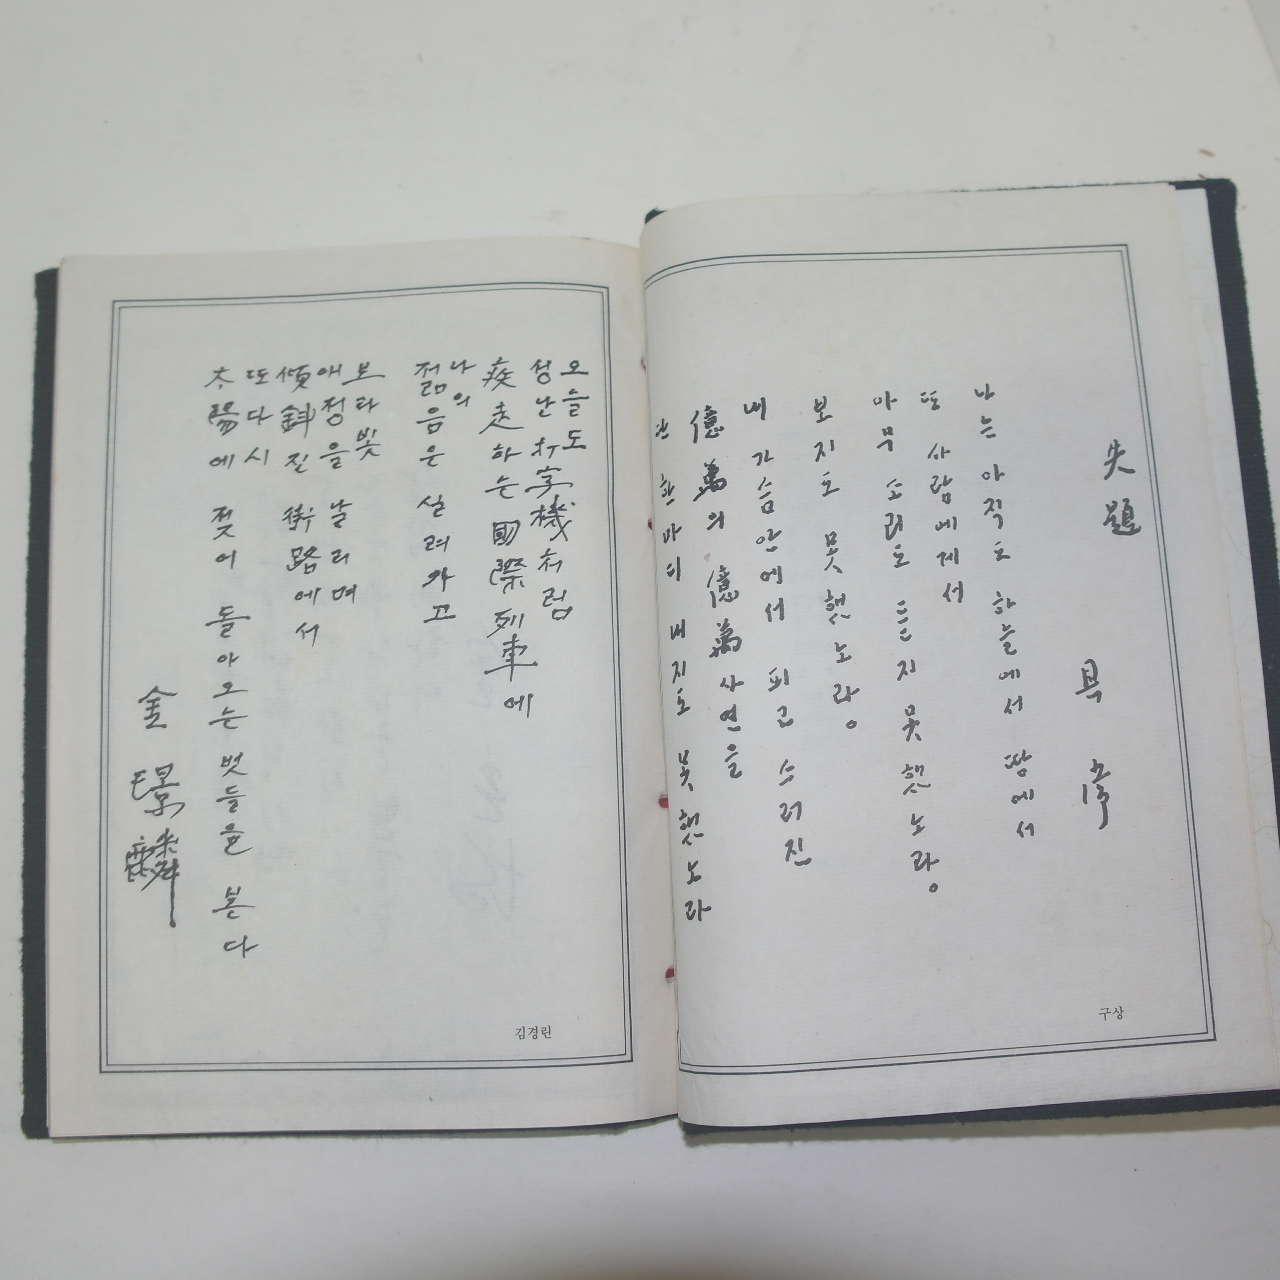 失題
具常
나는 아직도 하늘에서 땅에서
또 사람에게서
아무 소리도 듣지 못했노라。
보지도 못했노라。
내 가슴안에서 피고 스러진
億萬의 億萬 사연을
단 한마디 내지도 못했노라
구상
오늘도
성난 打字機처럼
疾走하는 國際列車에
나의
젊음은 실려가고
보라빛
애정을 날리며
傾斜진 街路에서
또다시
太陽에 젖어 돌아오는 벗들을 본다
金璟麟
김경린